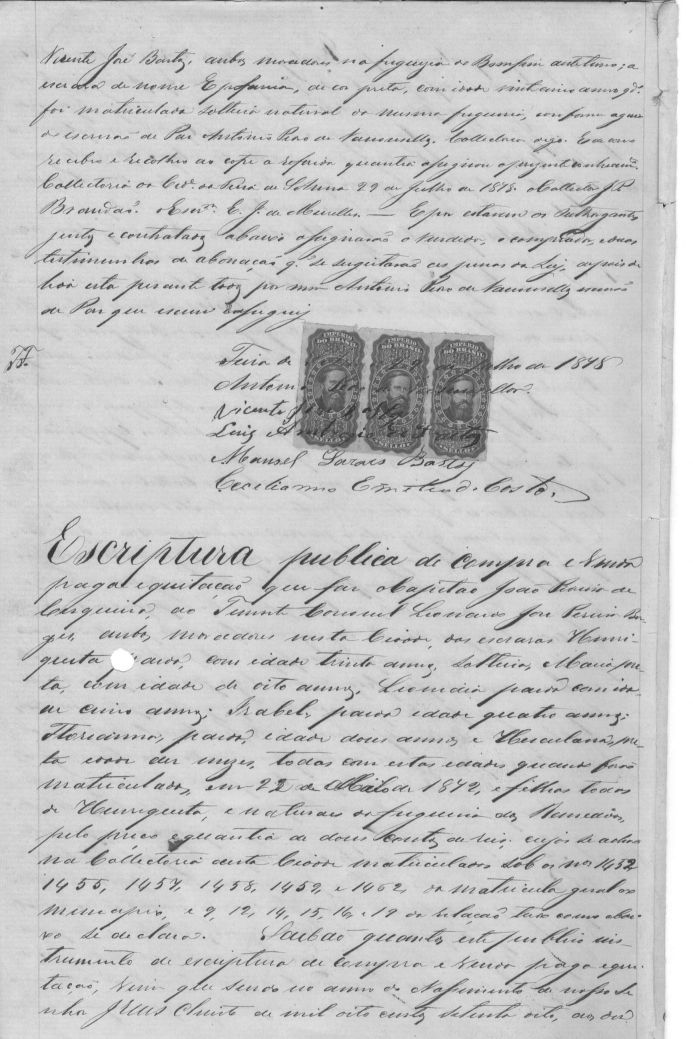 Vicente José Bastos, ambos moradores na freguesia do Bomfim da mesma; a
escrava de nome Epifania, de cor preta, com idade vinte annos qdo.
foi matriculada solteira natural da mesma freguesia, conforme
o escrivão de Paz Antonio de Vasconcellos. Collectoria
recebeo e recolheo ao cofre a referida quantia
Collectoria da Cide. da Feira de Setema 29 de Julho de 1878. O Collector J. P.
Brandão. O Escrm. E. J. de Merelles. — E por estarem os outhorgantes
justos e contratados abaixo assignarão o vendedor, o comprador, e duas
testimunhas de abonação q. se sugeitarão as penas da Lei, depois de
lida esta perante todos por mim Antonio de Vasconcellos escrivão
de Paz que escrevi e assignei
IMPERIO DO BRASIL IMPERIO DO BRASIL IMPERIO DO BRASIL
Feira de Julho de 1878
Antonio
Vicente José Bastos
Luiz Antonio
Manoel Soares Bastos
Ceciliano da Costa.
Escriptura publica de compra e venda
paga e quitação que faz o Capitão João de
Cerqueira, ao Tenente Coronel Leonardo José Pereira Bor-
ges, ambos moradores nesta Cidade, das escravas Henri-
queta parda, com idade trinta annos, solteira, Maria pre-
ta, com idade de oito annos, Leonidia parda com ida-
de cinco annos; Izabel, parda idade quatro annos;
Florianna, parda, idade dous annos e Herculana, pre-
ta idade dez mezes, todas com estas idades quando forão
matriculadas, em 22 de Maio de 1872, e filhas todas
de Henriqueta, e naturaes da freguesia dos Remedios,
pelo preço e quantia de dous contos de reis, cujos se achão
na Collectoria desta Cidade matriculados sob os nos 1452
1455, 1457, 1458, 1459, e 1462, da matricula geral do
municipio, e 9, 12, 14, 15, 16, e 19 da relação tudo como abai-
xo se declara. Saibão quantos este publico ins-
trumento de escriptura de compra e venda paga e qui-
tação, virem que sendo no anno do Nassimento de nosso Se-
nhor Jesus Christo de mil oito centos setenta oito, aos